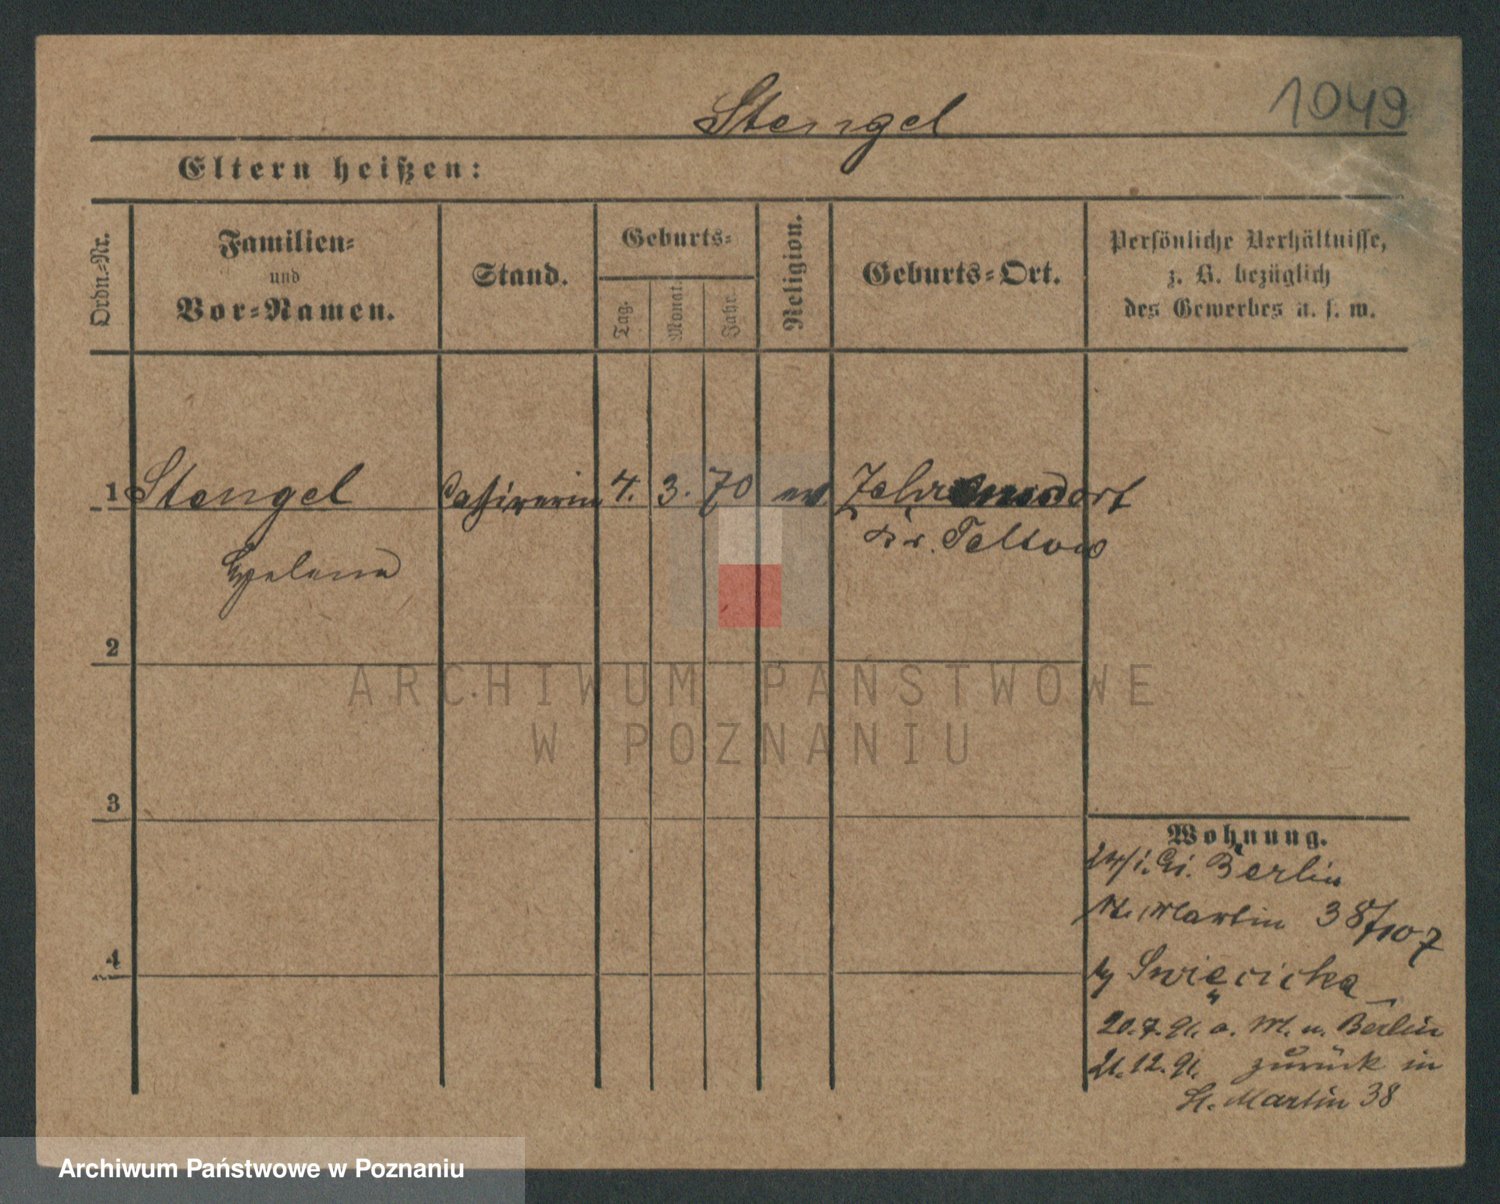 Stengel
1049
Eltern heißen:
Ordn.-Nr.
Familien-
und
Vor-Namen.
Stand.
Geburts-
Tag.
Monat.
Jahr.
Religion.
Geburts-Ort.
Persönliche Verhältnisse,
z. B. bezüglich
des Gewerbes u. s. w.
1 Stengel Cassirerin 4. 3. 70 ev. Zehrensdorf
Kr. Teltow
Helene
2
3
4
Wohnung.
Berlin
St. Martin 38
Swięcicka
20.7.91. a. M. n. Berlin
21.12.91. zurück in
St. Martin 38
ARCHIWUM PAŃSTWOWE
W POZNANIU
Archiwum Państwowe w Poznaniu